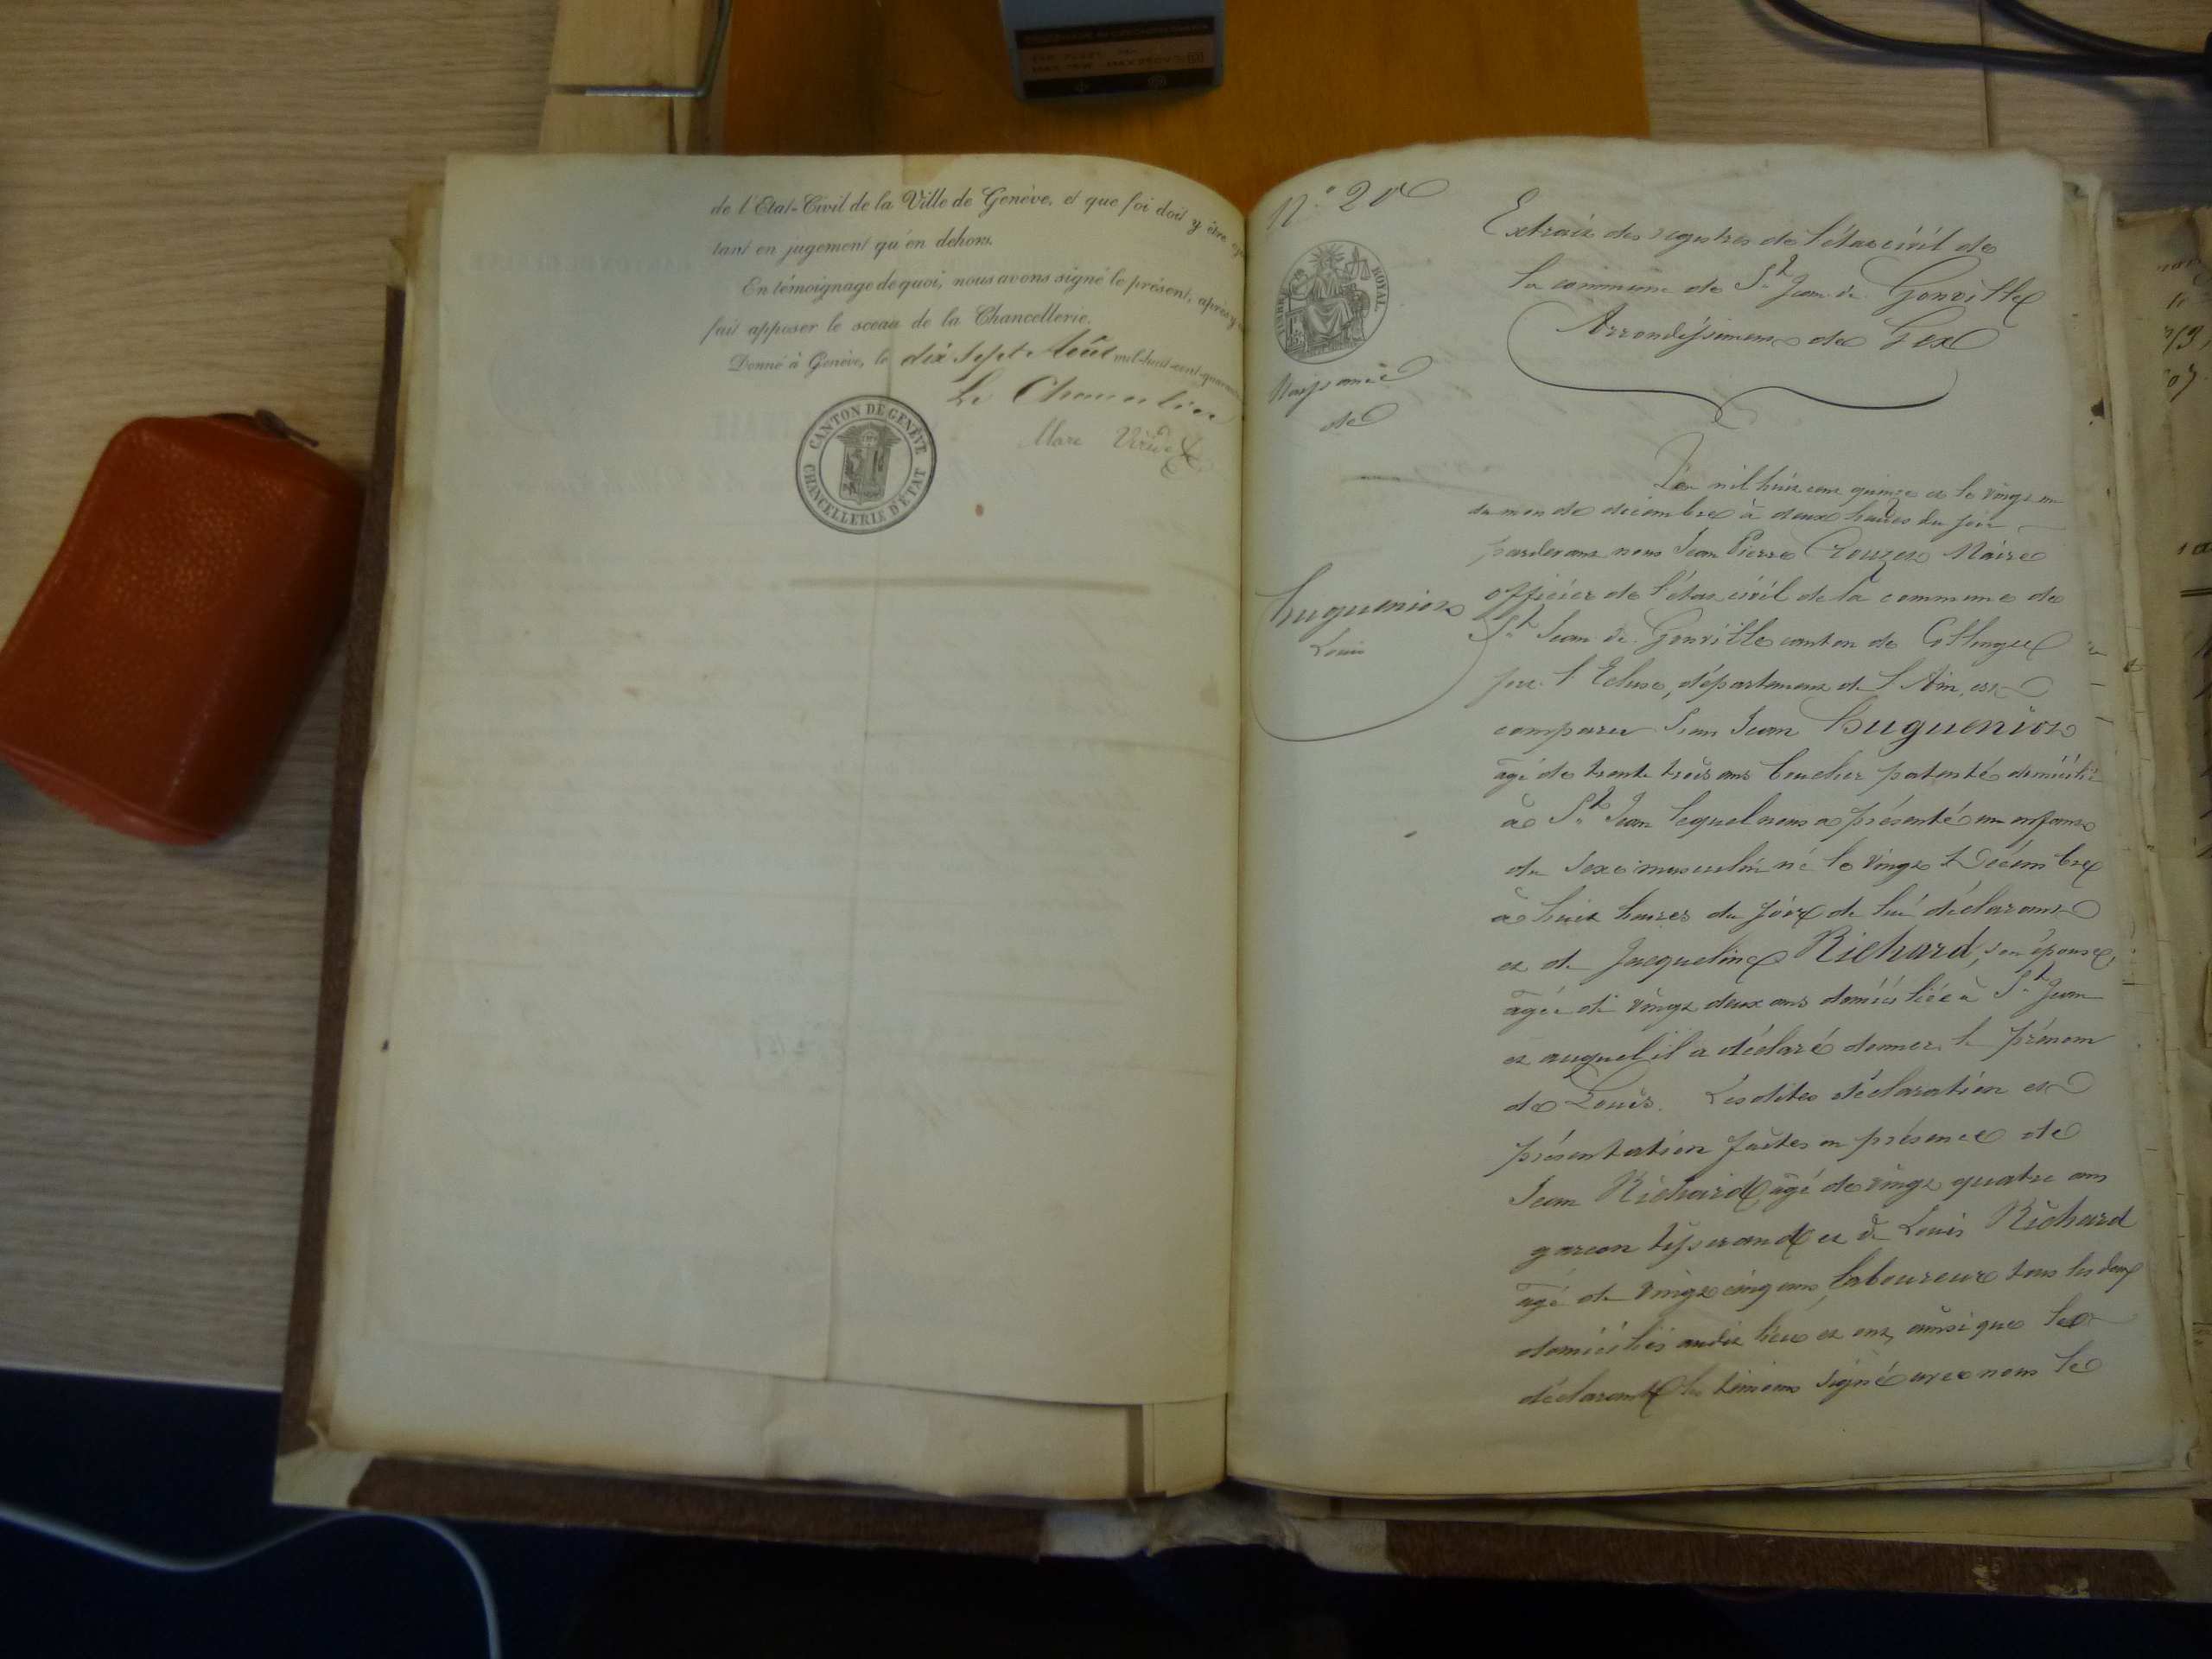 de l'Etat-Civil de la Ville de Genève, et que foi doit y être
tant en jugement qu'en dehors.
En témoignage de quoi, nous avons signé le présent, après y
fait apposer le sceau de la Chancellerie.
Donné à Genève, le dix sept Août mil-huit-cent-quarante
Le Chancelier
Marc Viridet
CANTON DE GENÈVE
CHANCELLERIE D'ETAT
N.°
TIMBRE ROYAL
Naissance
de
huguenion
Louis
Extrait des registres de l'état civil de
la commune de St Jean de Gonville
Arrondissement de Gex
L'an mil huit cent quinze et le vingt un
du mois de décembre à deux heures du soir
pardevant nous Jean Pierre Crouzet Maire
officier de l'état civil de la commune de
St Jean de Gonville canton de Collonges
fort l'Ecluse, département de l'Ain, est
comparu Jean huguenion
âgé de trente trois ans boucher patenté domicilié
à St Jean lequel nous a présenté un enfant
du sexe masculin né le vingt Décembre
à huit heures du soir de lui déclarant
et de Jacqueline Richard, son épouse,
âgée de vingt deux ans domiciliée à St Jean
et auquel il a déclaré donner le prénom
de Louis. Lesdites déclaration et
présentation faites en présence de
Jean Richard âgé de vingt quatre ans
garçon tisserand et de Louis Richard
âgé de vingt cinq ans, laboureur tous les deux
domiciliés audit lieu et ont, ainsi que le
déclarant les témoins signé avec nous le